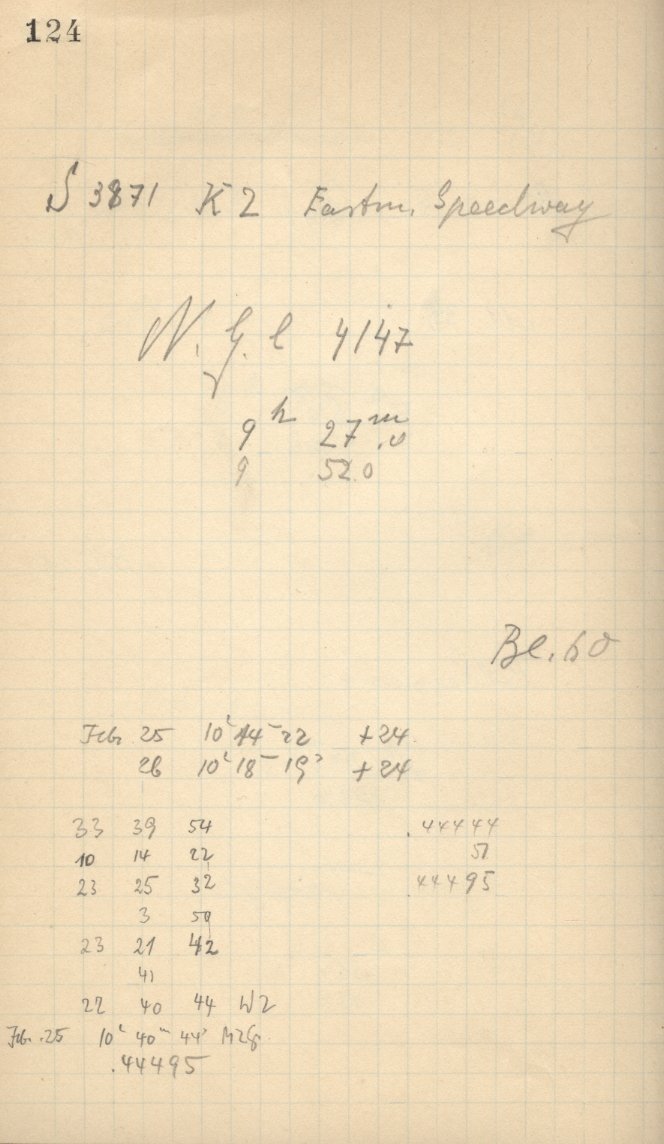 124
S 3871 K 2 Eastm. Speedway
N. G. C 4147
9h 27m.0
9 52.0
Be. 60
Feb 25 10h 14m 22 +24
26 10h 18m 19s +24
33 39 54 .44444
10 14 22 51
23 25 32 .44495
3 50
23 21 42
41
22 40 44 WZ
Feb. 25 10h 40m 44s MZG
.44495